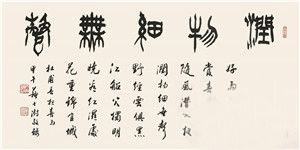 潤物細無聲
好雨
當春
隨風潛入夜
潤物細無聲
野徑雲俱黑
江船火獨明
曉看紅濕處
花重錦官城
杜甫春夜喜雨
甲午蘇士澍敬錄